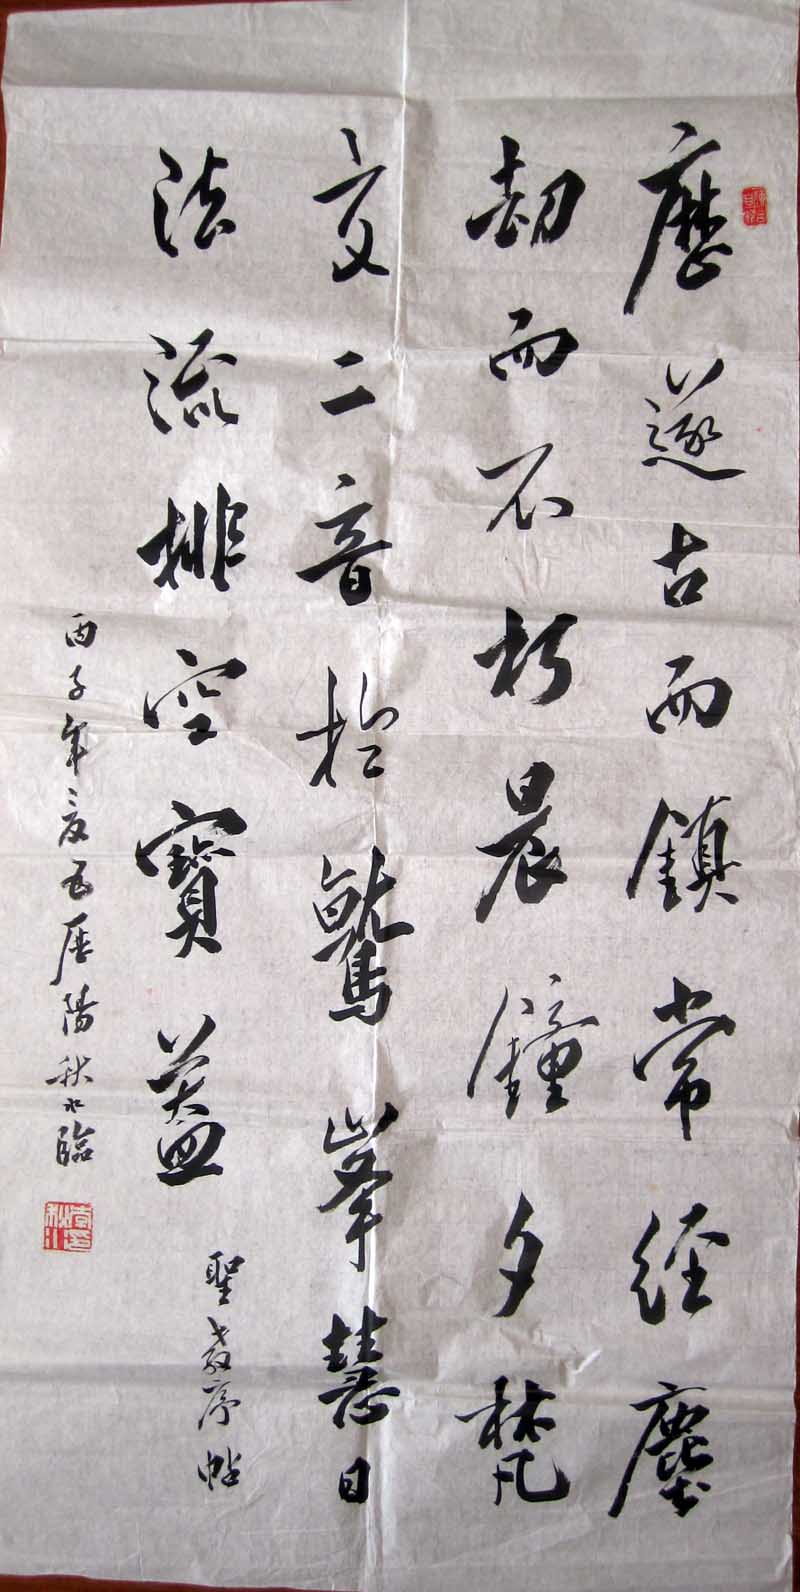 歷遂古而鎮常經塵
劫而不朽晨鐘夕梵
交二音於鷲峯慧日
法流排空寶蓋
聖教序帖
丙子年夏 陽秋水臨